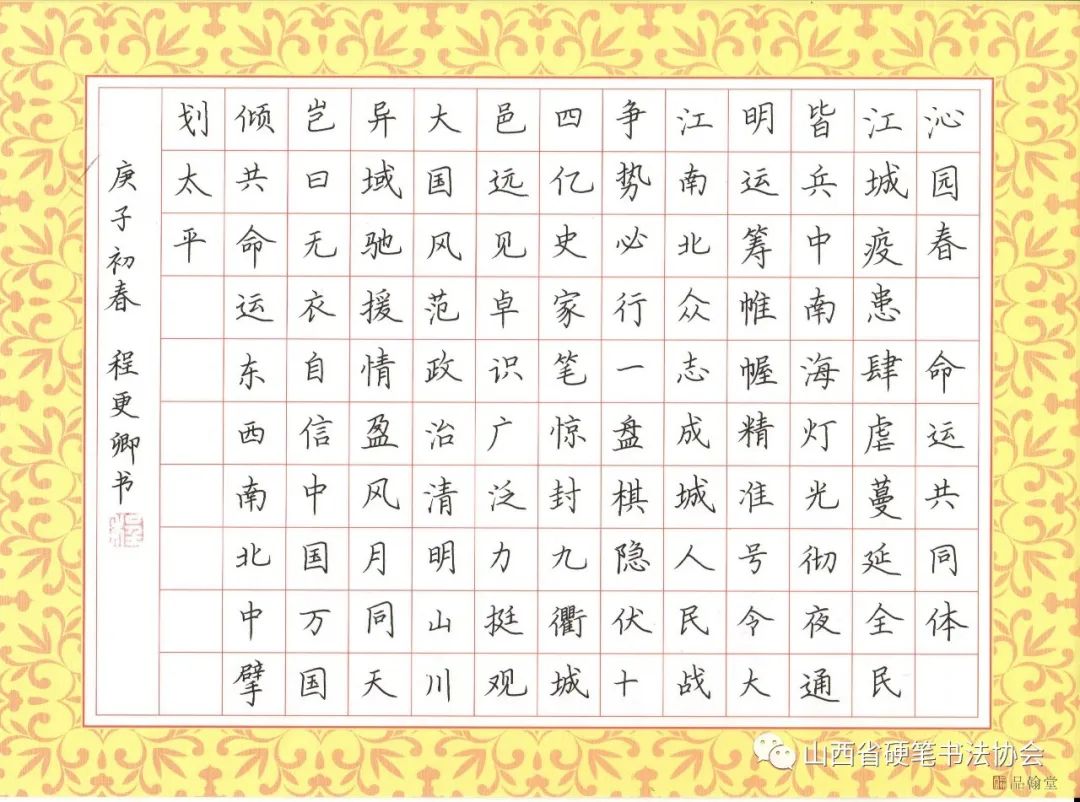 沁园春 命运共同体
江城疫患肆虐蔓延全民
皆兵中南海灯光彻夜通
明运筹帷幄精准号令大
江南北众志成城人民战
争势必行一盘棋隐伏十
四亿史家笔惊封九衢城
邑远见卓识广泛力挺观
大国风范政治清明山川
异域驰援情盈风月同天
岂曰无衣自信中国万国
倾共命运东西南北中擘
划太平
庚子初春 程更卿书
程
山西省硬笔书法协会
品翰堂